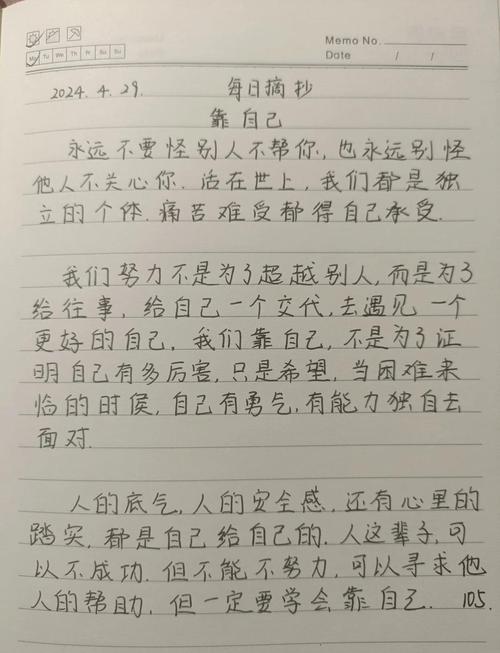 Memo No.
Mo Tu We Th Fr Sa Su
Date / /
2024.4.29. 每日摘抄
靠自己
永远不要怪别人不帮你,也永远别怪
他人不关心你.活在世上,我们都是独
立的个体.痛苦难受都得自己承受.
我们努力不是为了超越别人,而是为了
给往事,给自己一个交代,去遇见一个
更好的自己,我们靠自己,不是为了证
明自己有多厉害,只是希望,当困难来
临的时候,自己有勇气,有能力独自去
面对.
人的底气,人的安全感,还有心里的
踏实,都是自己给自己的.人这辈子,可
以不成功.但不能不努力,可以寻求他
人的帮助,但一定要学会靠自己. 105.